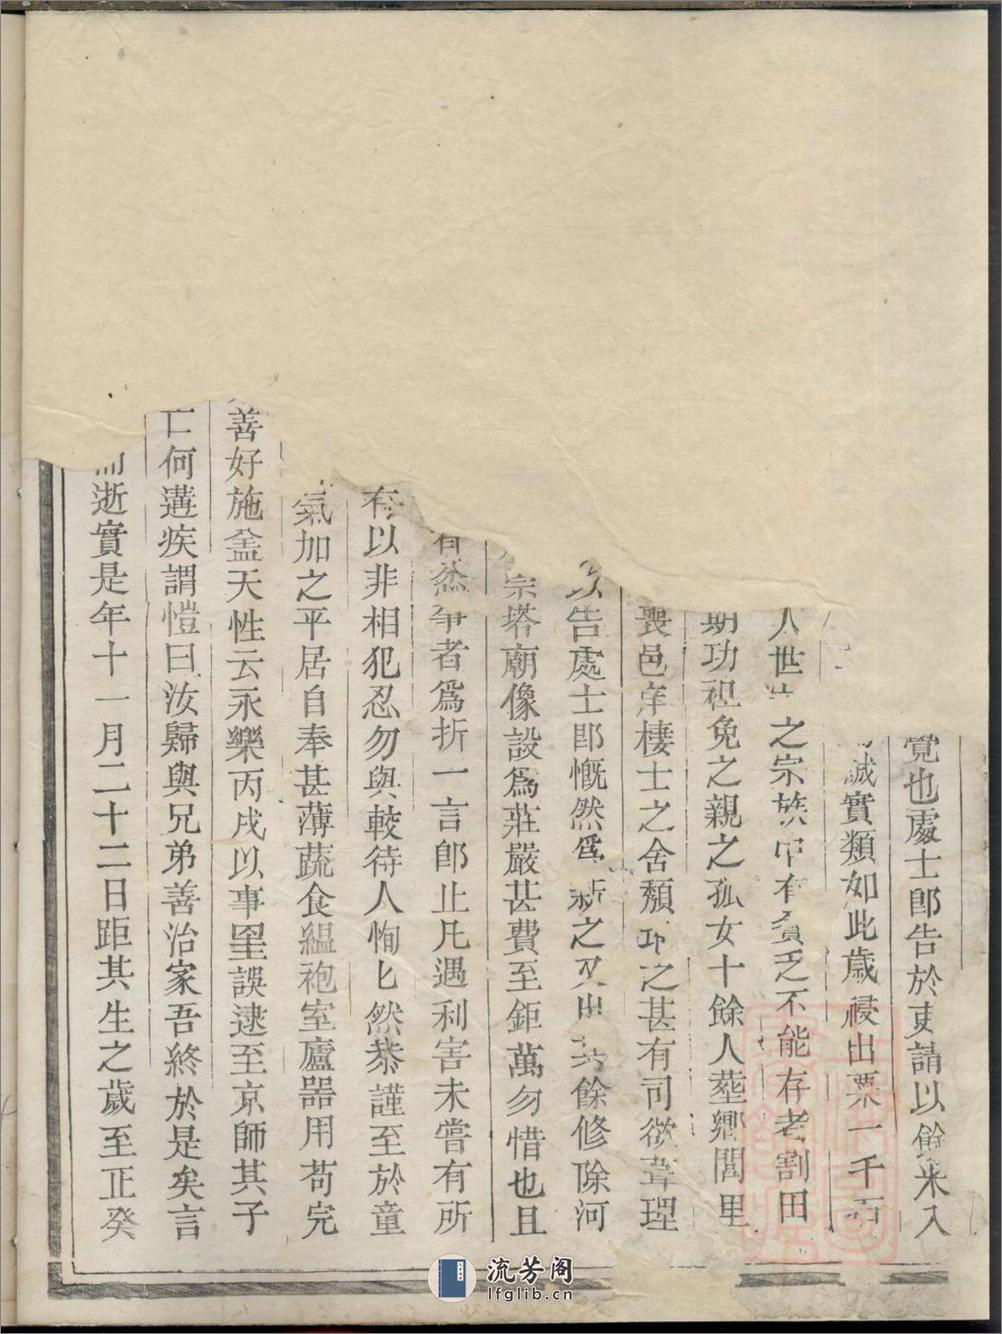 覺也處士即告於吏請以餘米入
誠實類如此歲祲出粟一千石
人世 之宗族中有貧乏不能存者割田
期功袒免之親之孤女十餘人塟鄉閭里
喪邑庠棲士之舍頽 之甚有司欲葺理
告處士即慨然爲新之又出其餘修除河
宗塔廟像設爲莊嚴甚費至鉅萬勿惜也且
有忿爭者爲折一言即止凡遇利害未嘗有所
有以非相犯忍勿與較待人恂匕然恭謹至於童
氣加之平居自奉甚薄蔬食緼袍室廬器用苟完
善好施葢天性云永樂丙戌以事罣誤逮至京師其子
亡何遘疾謂愷曰汝歸與兄弟善治家吾終於是矣言
而逝實是年十一月二十二日距其生之歲至正癸
流芳阁
lfglib.cn